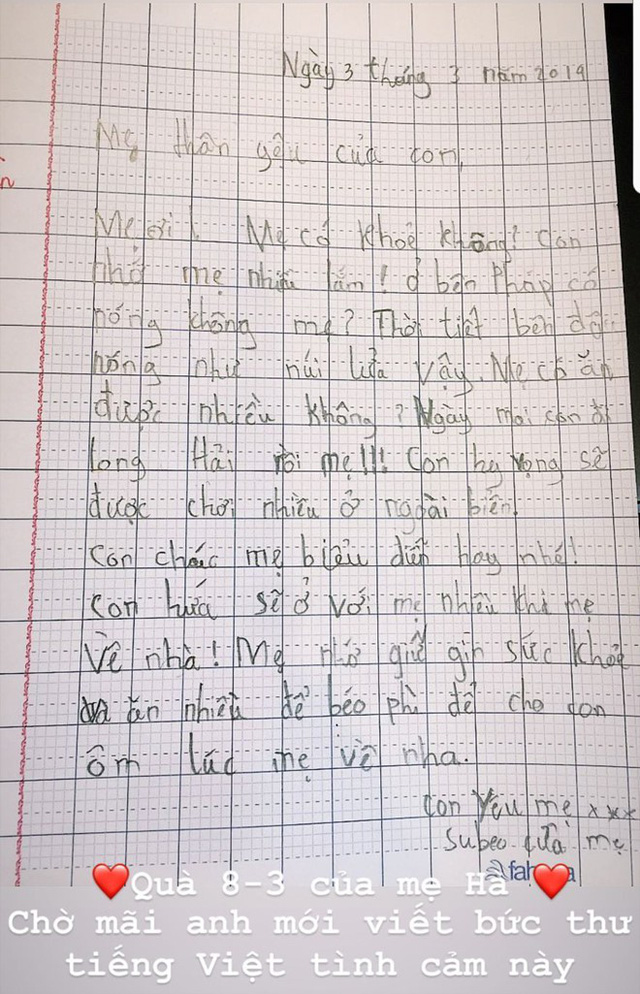 Ngày 3 tháng 3 năm 2019
Mẹ thân yêu của con,
Mẹ ơi! Mẹ có khoẻ không? Con
nhớ mẹ nhiều lắm! Ở bên Pháp có
nóng không mẹ? Thời tiết bên đây
nóng như núi lửa vậy. Mẹ có ăn
được nhiều không? Ngày mai con đi
Long Hải rồi mẹ!!! Con hy vọng sẽ
được chơi nhiều ở ngoài biển.
Con chúc mẹ biểu diễn hay nhé!
Con hứa sẽ ở với mẹ nhiều khi mẹ
về nhà! Mẹ nhớ giữ gìn sức khoẻ
và ăn nhiều để béo phì để cho con
ôm lúc mẹ về nha.
Con yêu mẹ xxx
Subeo của mẹ
❤️Quà 8-3 của mẹ Hà❤️
Chờ mãi anh mới viết bức thư
tiếng Việt tình cảm này